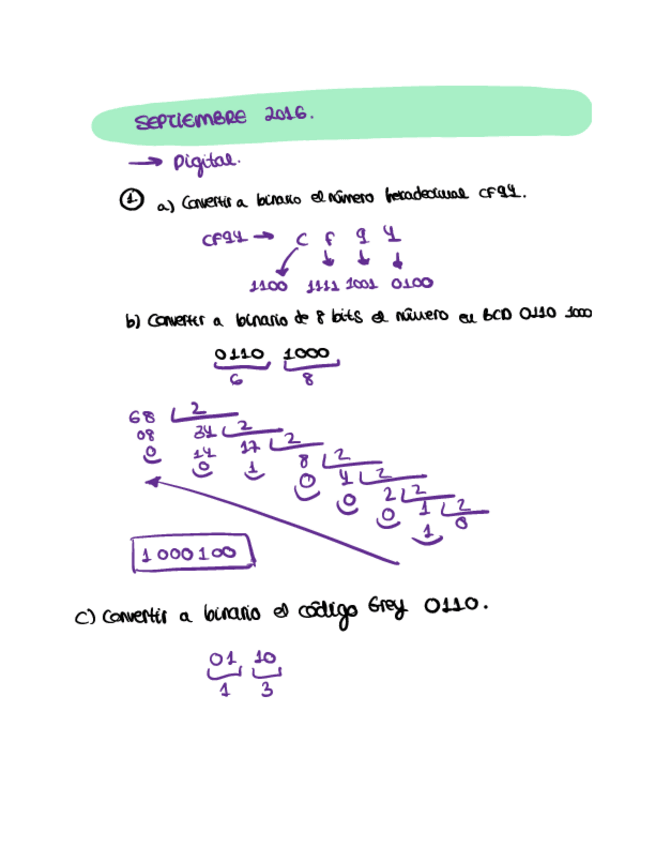 SEPTIEMBRE 2016.
→ Digital.
① a) Convertir a binario el número hexadecimal CF94.
CF94 → C F 9 4
1100 1111 1001 0100
b) Convertir a binario de 8 bits el número en BCD 0110 1000
0110 1000
6 8
68 2
08 34 2
0 14 17 2
0 1 8 2
0 4 2
0 2 2
0 1 2
1 0
1000100
c) Convertir a binario el código Grey 0110.
01 10
1 3